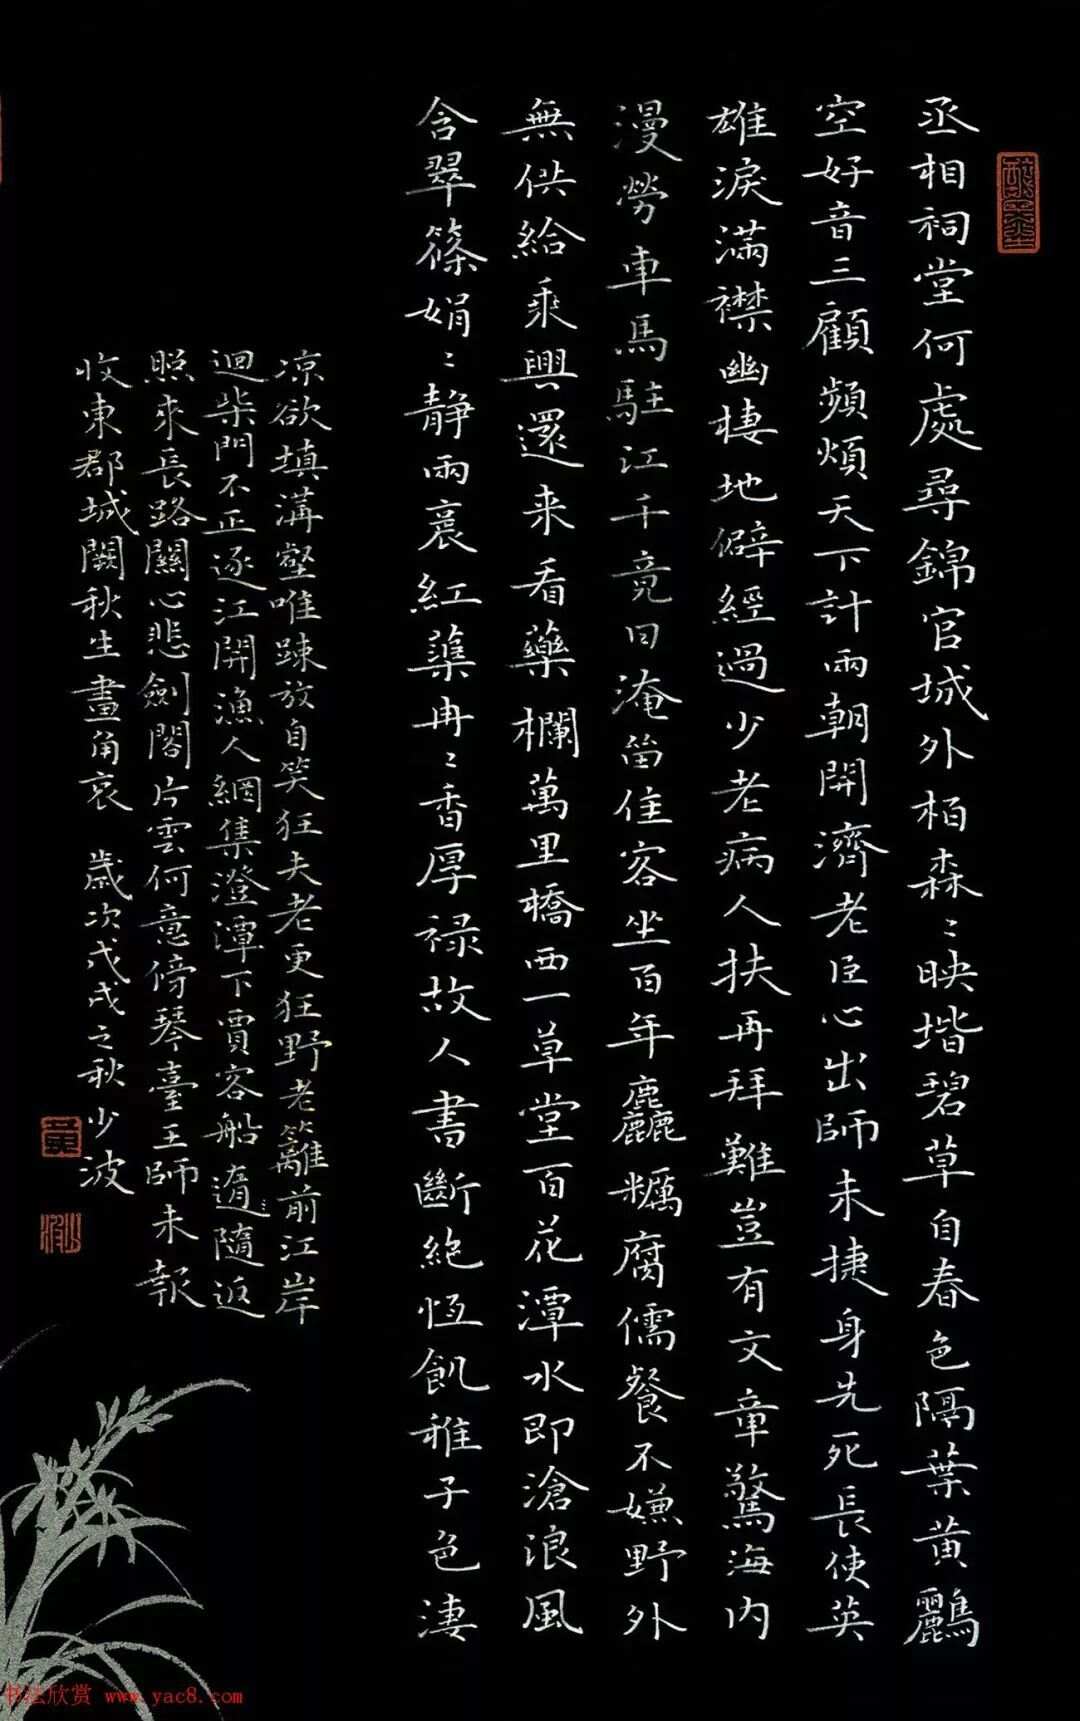 丞相祠堂何處尋錦官城外柏森〻映堦碧草自春色隔葉黃鸝
空好音三顧頻煩天下計兩朝開濟老臣心出師未捷身先死長使英
雄淚滿襟幽棲地僻經過少老病人扶再拜難豈有文章驚海内
漫勞車馬駐江千竟日淹留佳客坐百年麤糲腐儒餐不嫌野外
無供給乘興還来看藥欄萬里橋西一草堂百花潭水即滄浪風
含翠篠娟〻静雨裛紅蕖冉〻香厚禄故人書斷絶恆飢稚子色淒
凉欲填溝壑唯踈放自笑狂夫老更狂野老籬前江岸
迴柴門不正逐江開漁人網集澄潭下賈客船隨返
照来長路關心悲劍閣片雲何意傍琴臺王師未報
收東郡城闕秋生畫角哀 歲次戊戌之秋少波
书法欣赏 www.yac8.com